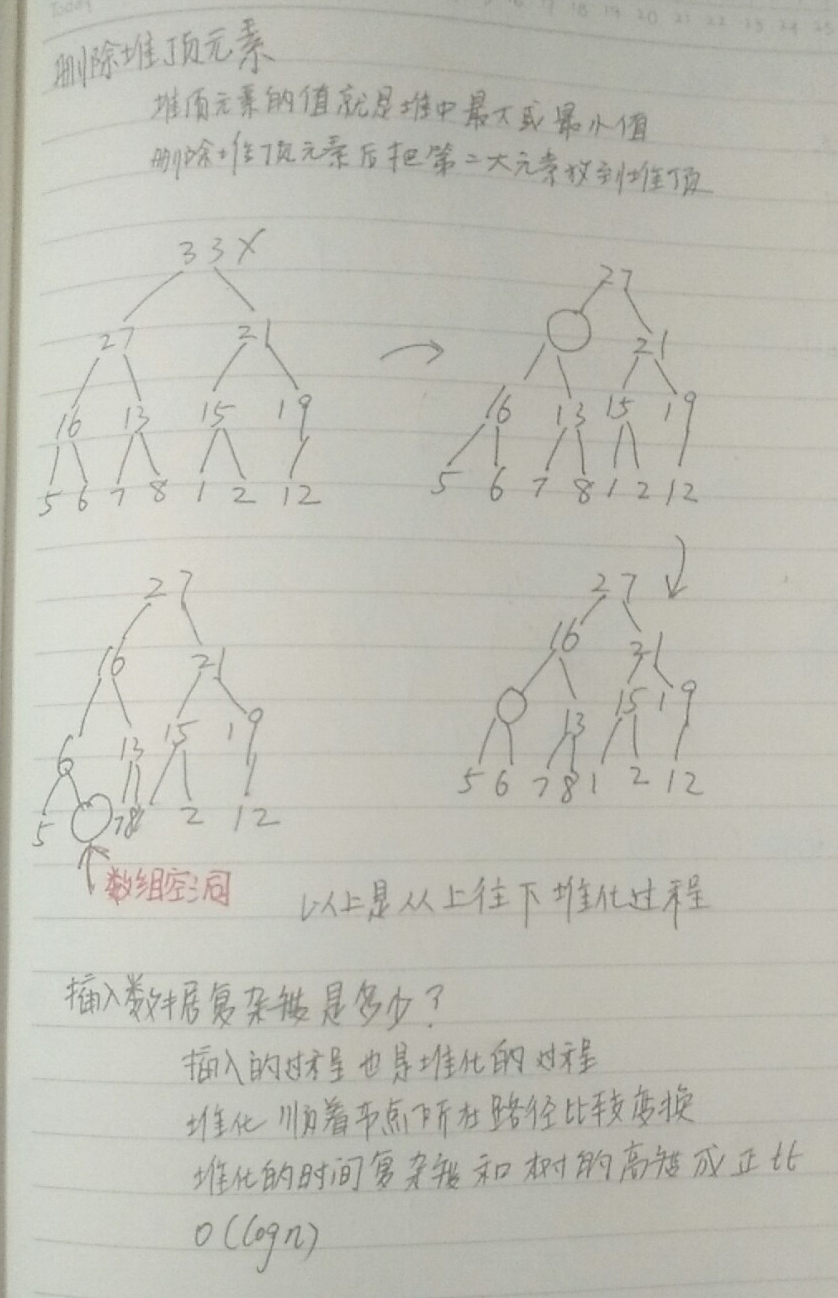 Today
16 17 18 19 20 21 22 23 24 25
删除堆顶元素
堆顶元素的值就是堆中最大或最小值
删除堆顶元素后把第二大元素放到堆顶
33 X
27 21
16 13 15 19
5 6 7 8 1 2 12
27
21
16 13 15 19
5 6 7 8 1 2 12
27
16 21
6 13 15 19
5 7 8 2 12
数组空洞
27
16 21
13 15 19
5 6 7 8 1 2 12
以上是从上往下堆化过程
插入数据复杂度是多少?
插入的过程也是堆化的过程
堆化 顺着节点所在路径比较交换
堆化的时间复杂度和树的高度成正比
O(logn)